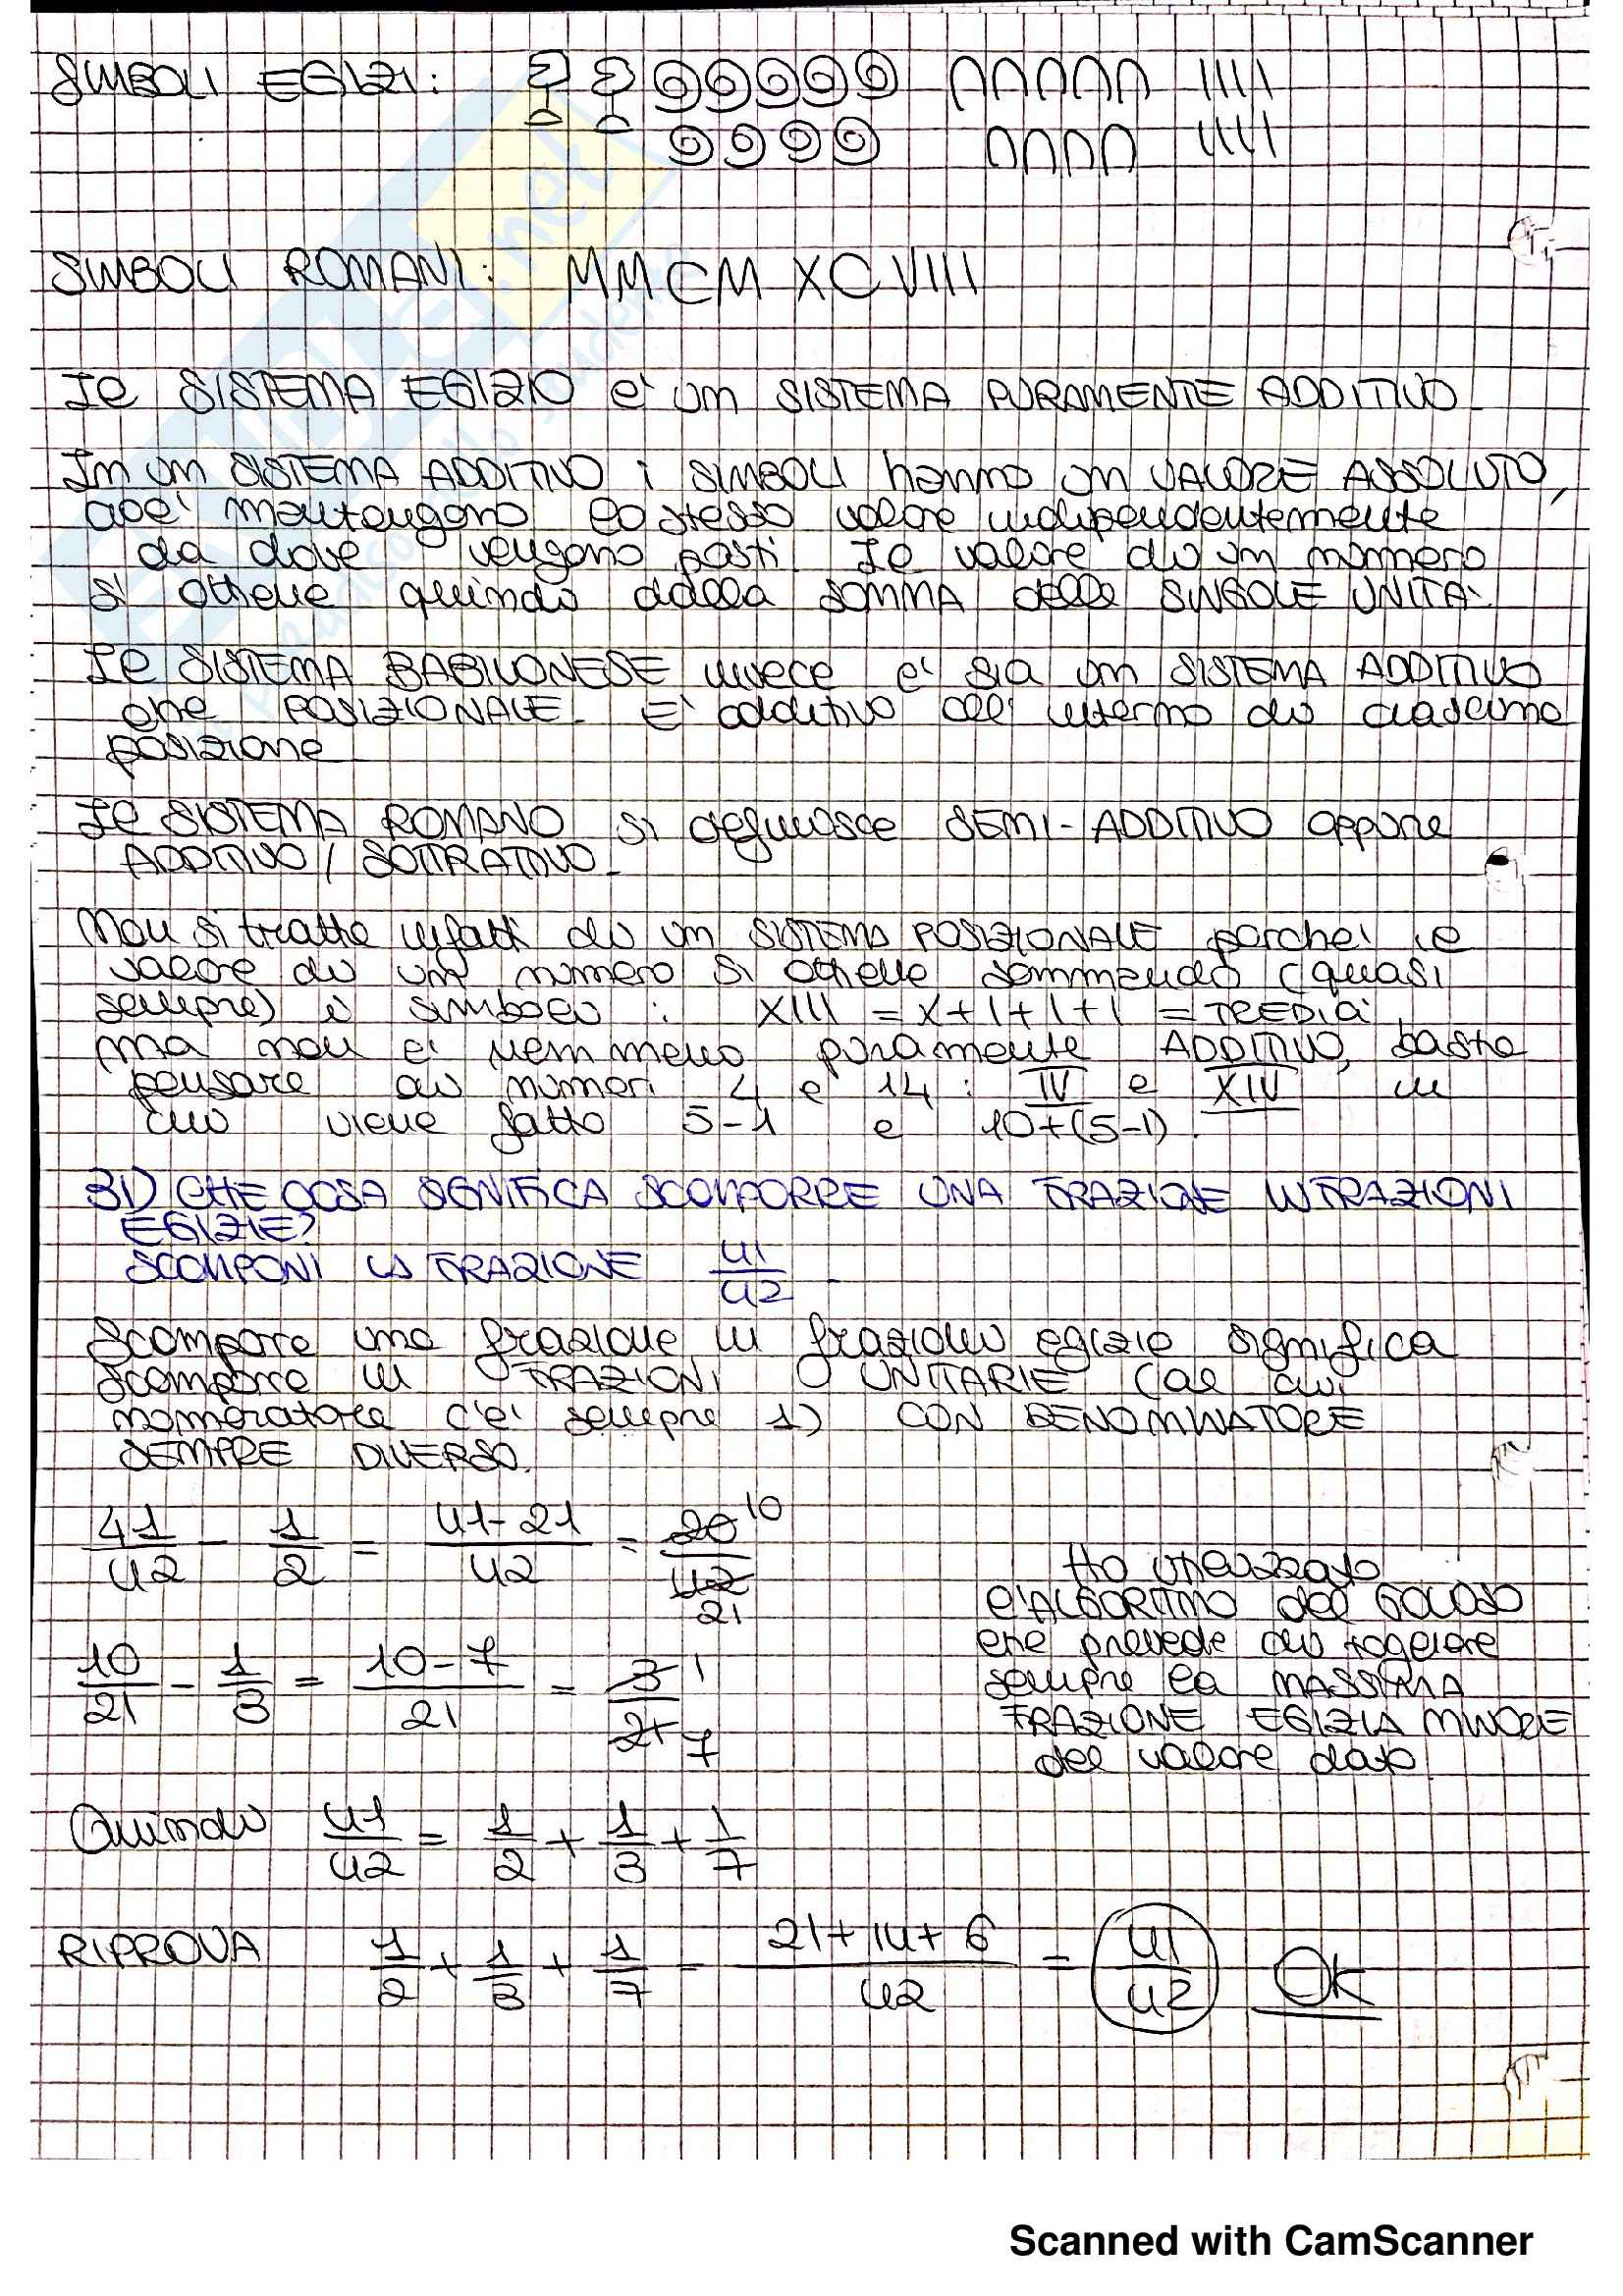 SIMBOLI EGIZI:
SIMBOLI ROMANI: MMCMXCVIII
Il SISTEMA EGIZIO e' un SISTEMA PURAMENTE ADDITIVO.
In un SISTEMA ADDITIVO i SIMBOLI hanno un VALORE ASSOLUTO,
cioe' mantengono lo stesso valore indipendentemente
da dove vengono posti. Il valore di un numero
si ottiene quindi dalla SOMMA delle SINGOLE UNITA'.
Il SISTEMA BABILONESE invece e' sia un SISTEMA ADDITIVO
che POSIZIONALE. E' additivo all'interno di ciascuna
posizione
Il SISTEMA ROMANO si definisce SEMI-ADDITIVO oppure
ADDITIVO / SOTTRATTIVO.
Non si tratta infatti di un SISTEMA POSIZIONALE perche' il
valore di un numero si ottiene sommando (quasi
sempre) i simboli: XIII = X+I+I+I = TREDICI
ma non e' nemmeno puramente ADDITIVO, basta
pensare ai numeri 4 e 14: IV e XIV in
cui viene fatto 5-1 e 10+(5-1).
31) CHE COSA SIGNIFICA SCOMPORRE UNA FRAZIONE IN FRAZIONI
EGIZIE?
SCOMPONI LA FRAZIONE 41/42.
Scomporre una frazione in frazioni egizie significa
scomporre in FRAZIONI UNITARIE (al cui
numeratore c'e' sempre 1) CON DENOMINATORE
SEMPRE DIVERSO.
41/42 - 1/2 = 41-21/42 = 20/42 10/21
Ho utilizzato
l'ALGORITMO del GOLOSO
che prevede di togliere
sempre la MASSIMA
FRAZIONE EGIZIA MINORE
del valore dato
10/21 - 1/3 = 10-7/21 = 3/21 1/7
Quindi 41/42 = 1/2 + 1/3 + 1/7
RIPROVA 1/2 + 1/3 + 1/7 = 21+14+6/42 = 41/42 OK
Scanned with CamScanner